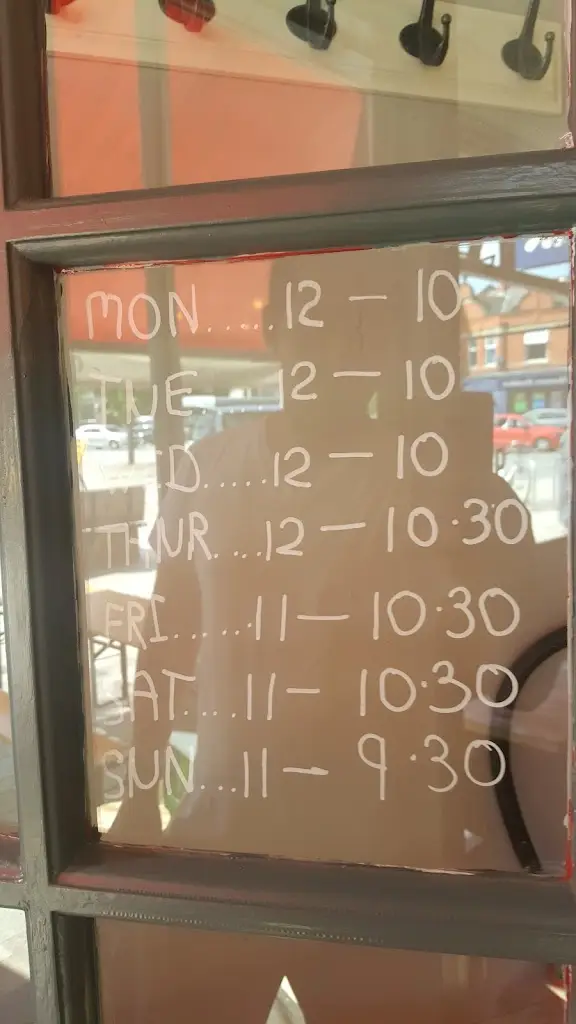 MON......12 - 10
TUE 12 - 10
WED.....12 - 10
THUR....12 - 10·30
FRI......11 - 10·30
SAT....11 - 10·30
SUN...11 - 9·30